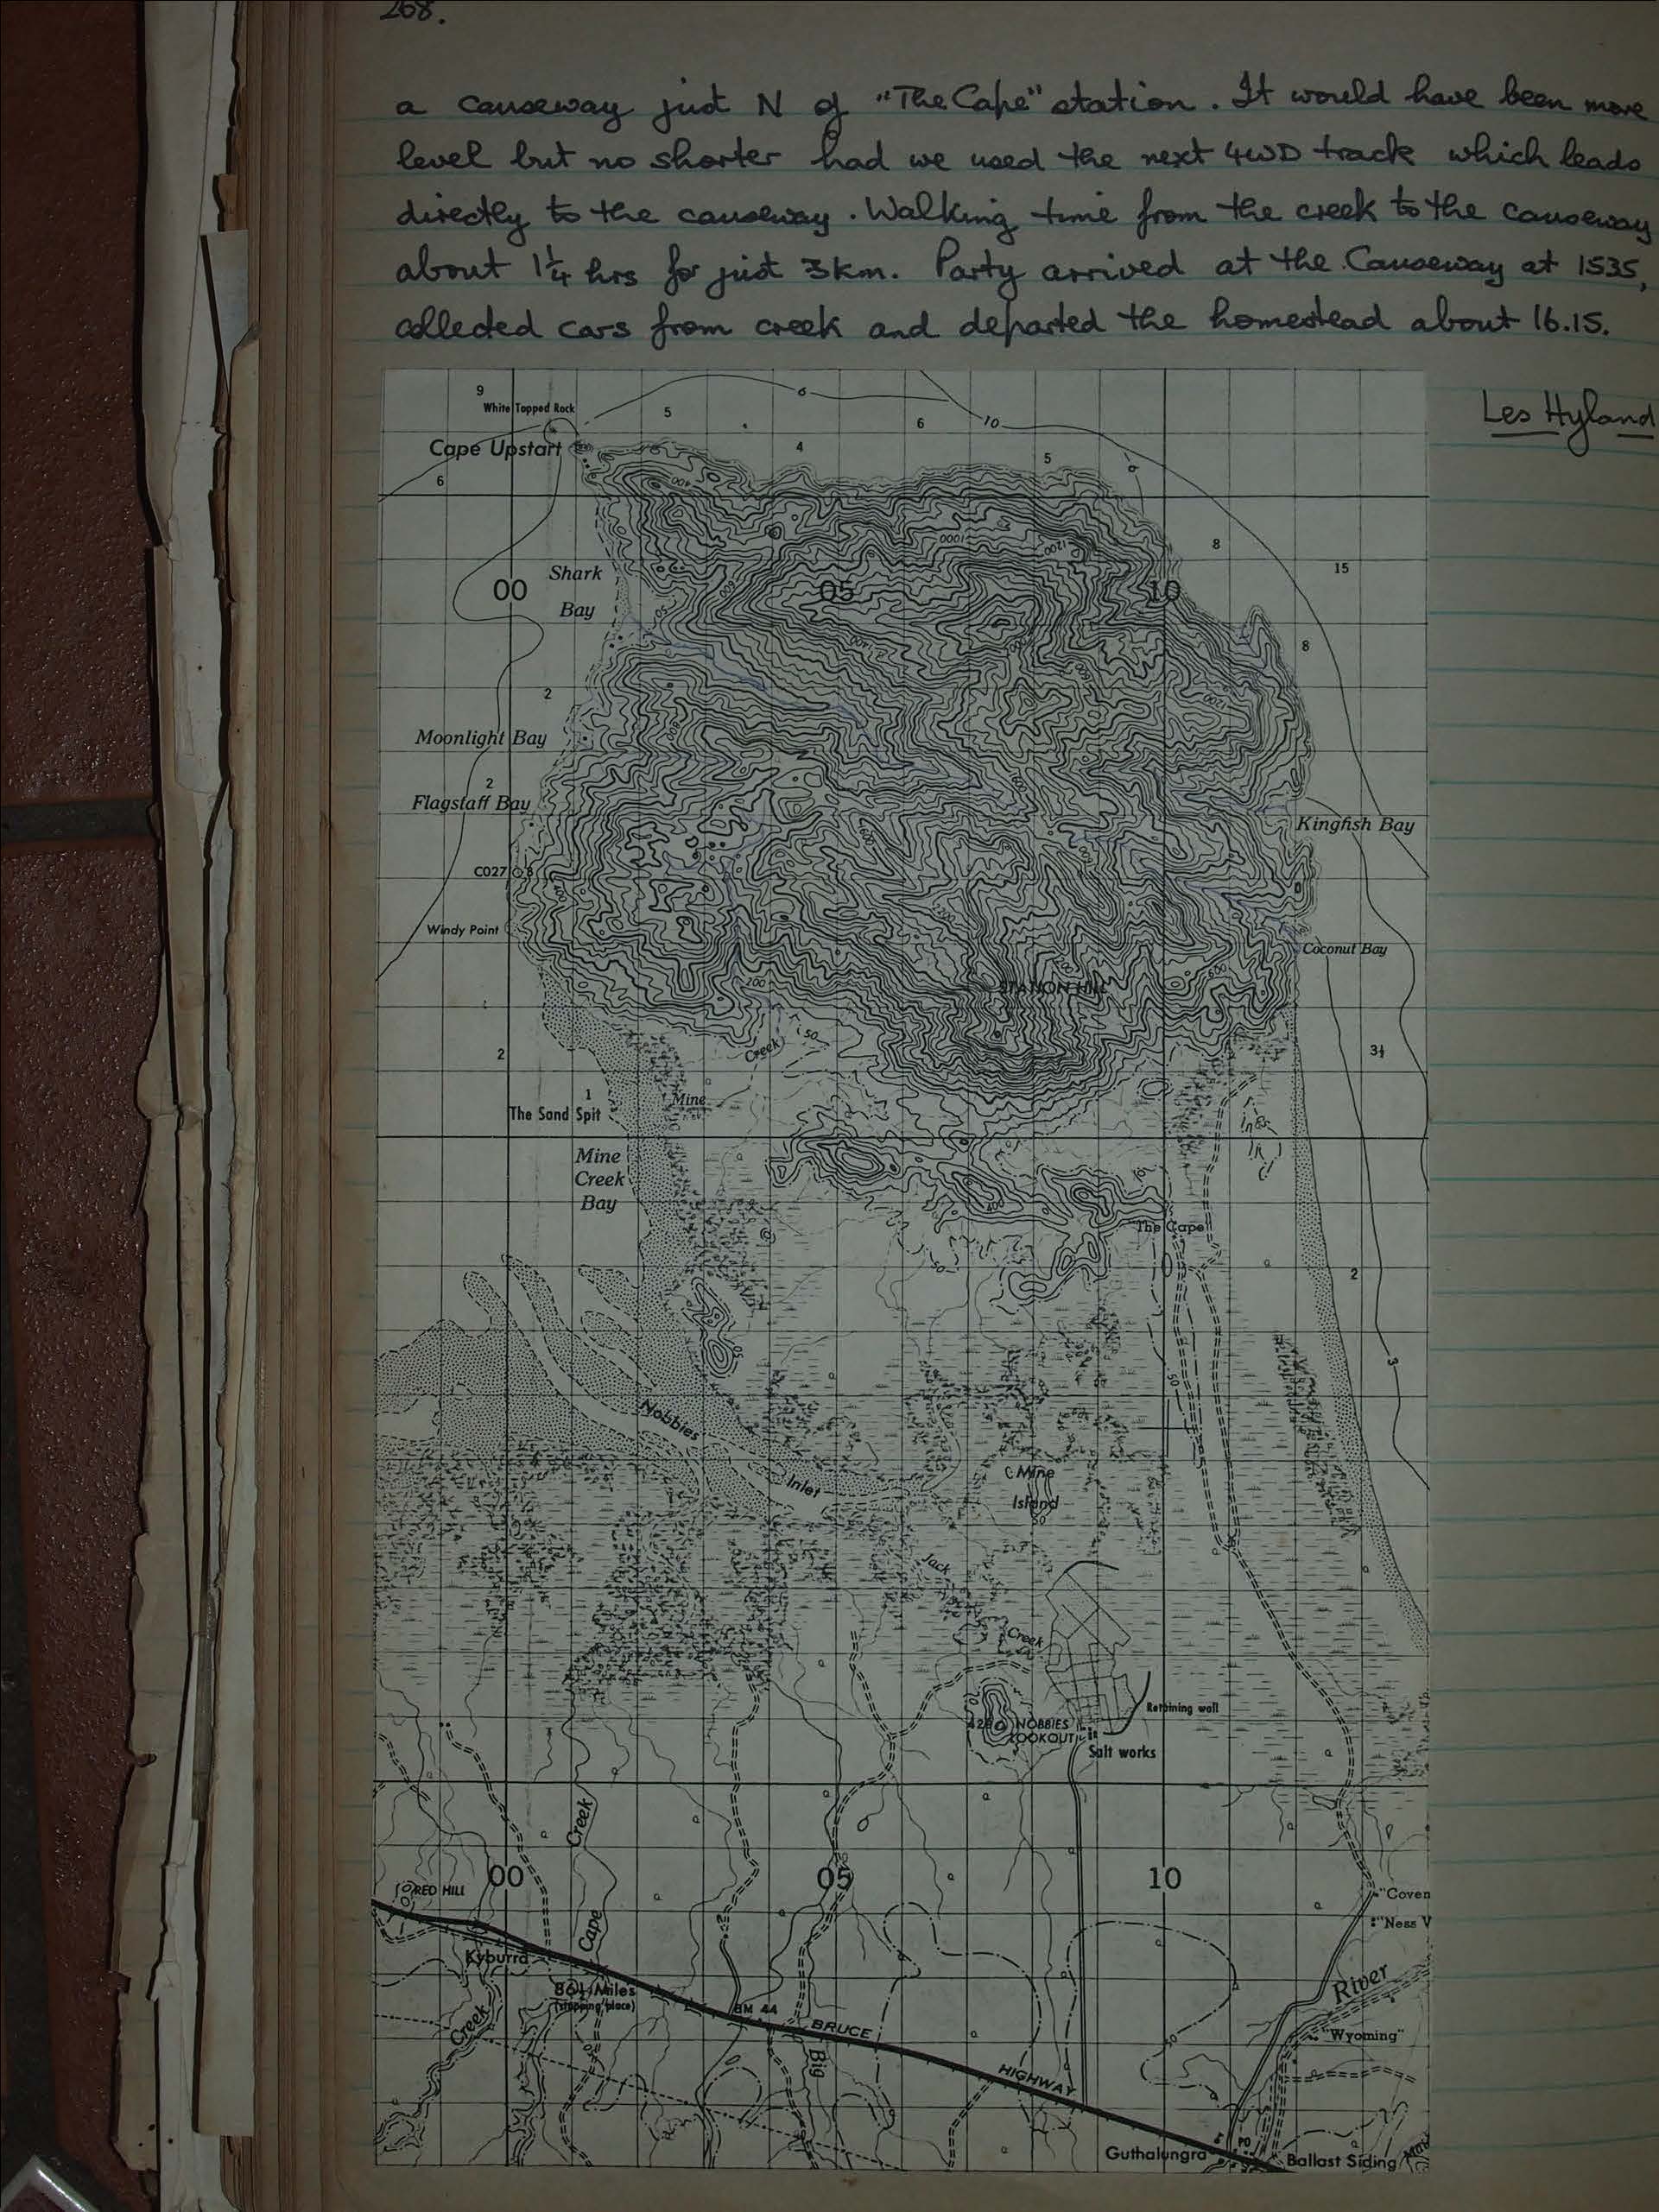 268.
a causeway just N of "The Cape" station. It would have been more
level but no shorter had we used the next 4WD track which leads
directly to the causeway. Walking time from the creek to the causeway
about 1¼ hrs for just 3km. Party arrived at the Causeway at 1535,
collected cars from creek and departed the homestead about 16.15.
Les Hyland
9
White Topped Rock
5
6
10
6
Cape Upstart
4
5
6
400
1000
1200
8
15
Shark
Bay
00
05
10
600
50
8
2
1200
Moonlight Bay
800
2
Flagstaff Bay
Kingfish Bay
C027
Windy Point
Coconut Bay
600
200
STATION HILL
50
Creek
2
3½
1
The Sand Spit
Mine
Mine
Creek
Bay
400
"The Cape"
50
2
50
3
Nobbies
Inlet
Mine
Island
50
Jack
Creek
Retaining wall
NOBBIES
LOOKOUT
Salt works
Creek
00
05
10
RED HILL
"Coven
"Ness V
Cape
Kyburra
86½ Miles
(stopping place)
River
Creek
BM 44
BRUCE
"Wyoming"
50
Big
HIGHWAY
PO
Guthalungra
Ballast Siding